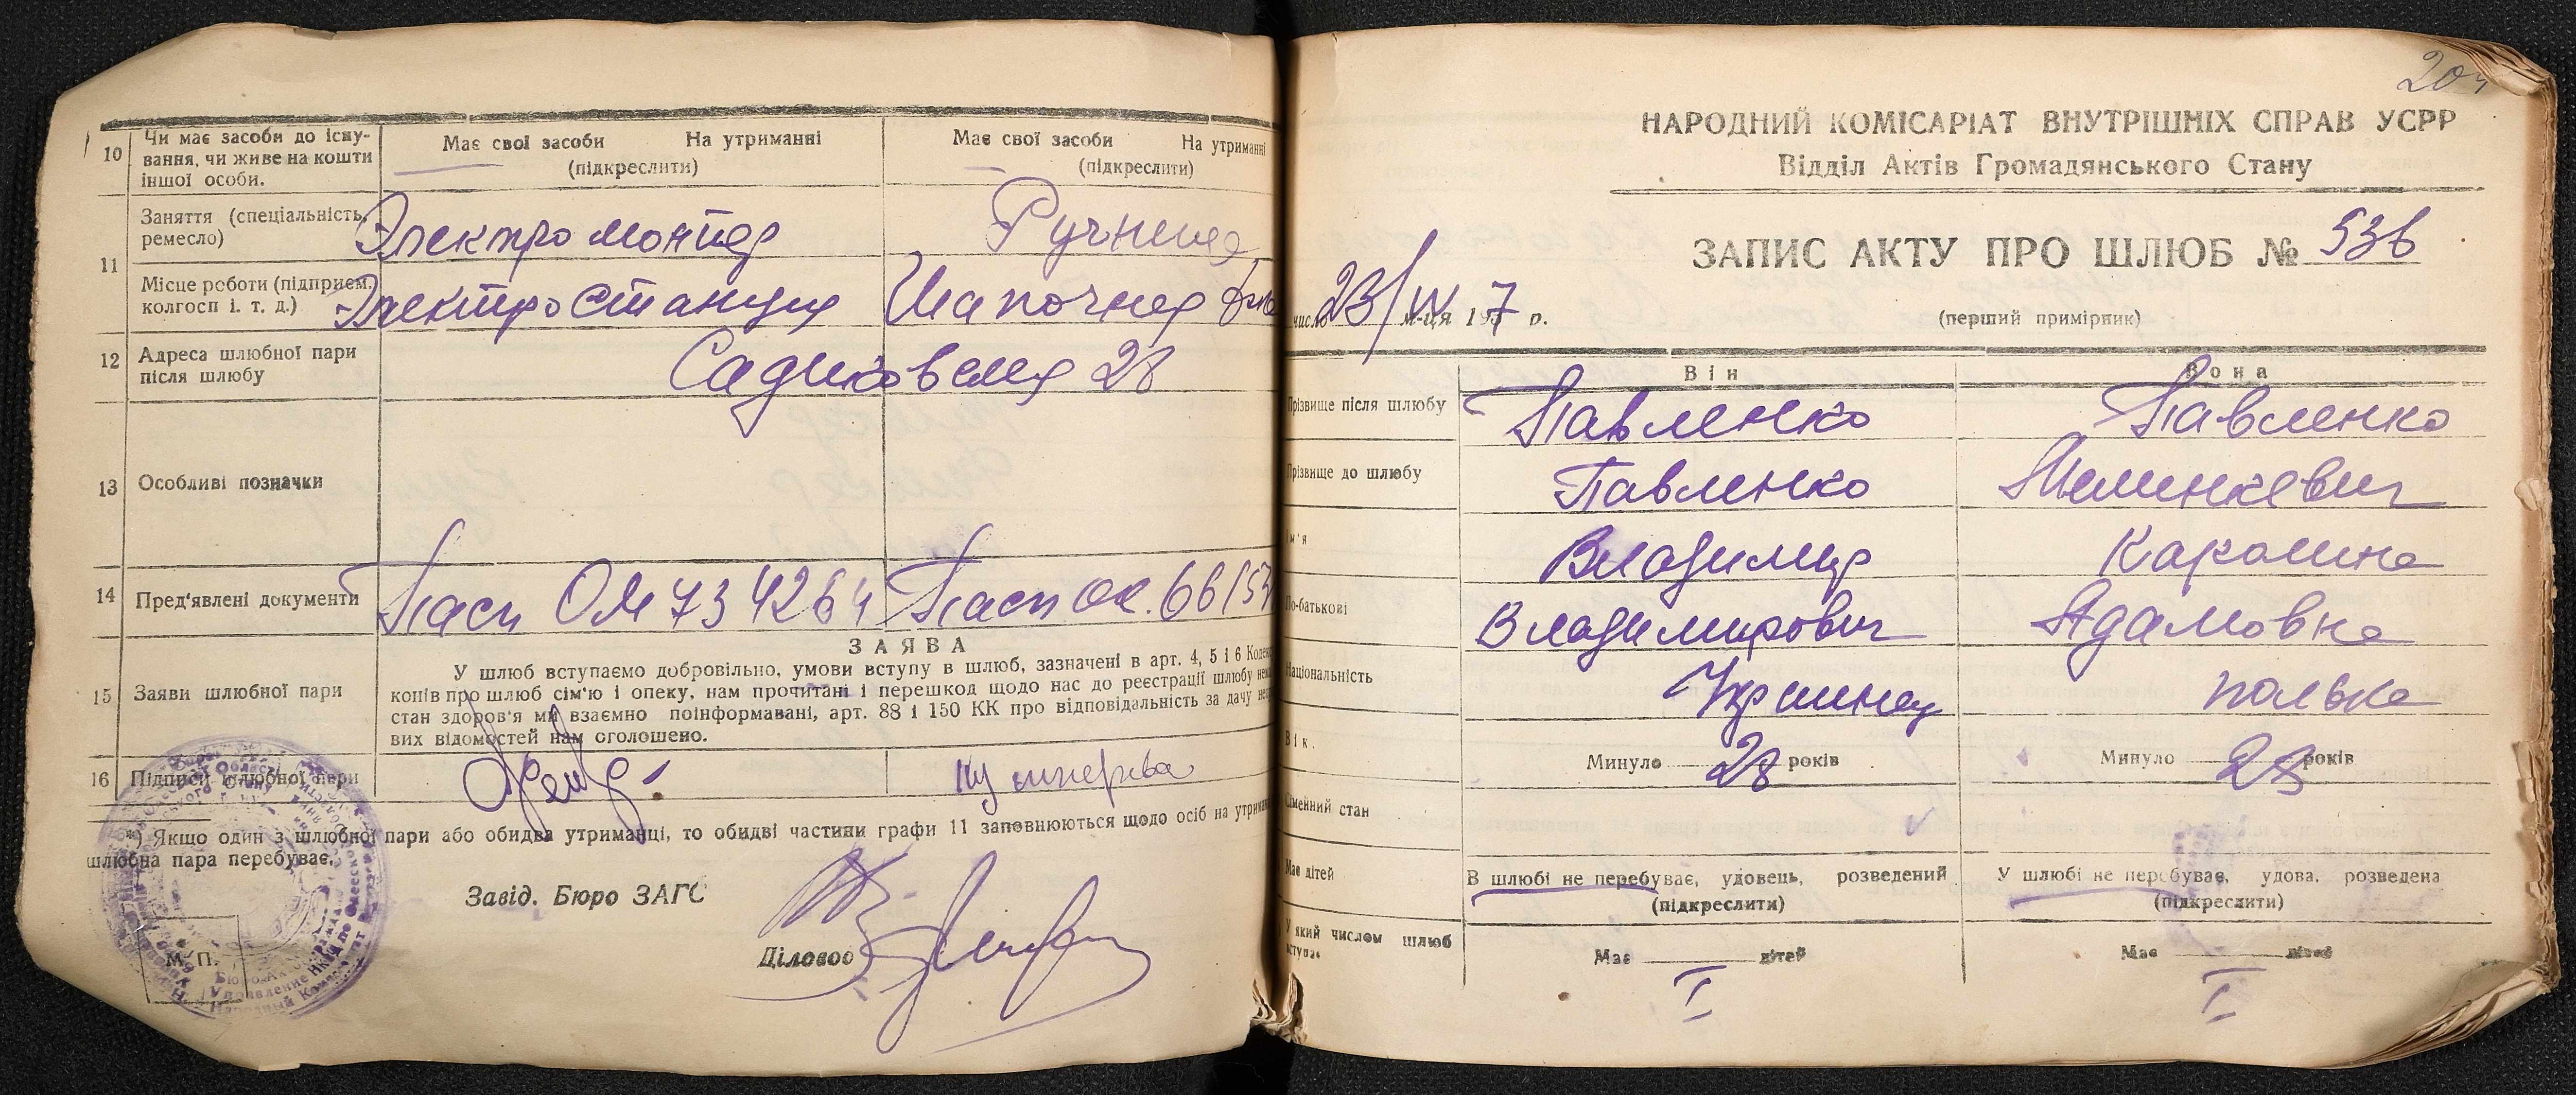 10 Чи має засоби до існу-
вання, чи живе на кошти
іншої особи.
Має свої засоби На утриманні
(підкреслити)
Має свої засоби На утриманні
(підкреслити)
11
Заняття (спеціальність,
ремесло)
Электромонтер
Місце роботи (підприєм.
колгосп і. т. д.)
Электростанция
Шапочная
12 Адреса шлюбної пари
після шлюбу
Садиковская 28
13 Особливі позначки
14 Пред'явлені документи
Пасп ОМ 734264
Пасп
15 Заяви шлюбної пари
ЗАЯВА
У шлюб вступаємо добровільно, умови вступу в шлюб, зазначені в арт. 4, 5 і 6
конів про шлюб сім'ю і опеку, нам прочитані і перешкод щодо нас до реєстрації шлюбу
стан здоров'я ми взаємно поінформавані, арт. 88 і 150 КК про відповідальність за дачу
вих відомостей нам оголошено.
16 Підписи шлюбної пари
*) Якщо один з шлюбної пари або обидва утриманці, то обидві частини графи 11 заповнюються щодо осіб на
шлюбна пара перебуває.
Завід. Бюро ЗАГС
Діловод
М. П.
204
НАРОДНИЙ КОМІСАРІАТ ВНУТРІШНІХ СПРАВ УСРР
Відділ Актів Громадянського Стану
ЗАПИС АКТУ ПРО ШЛЮБ № 536
(перший примірник)
число 23/IV м-ця 1937 р.
Він
Вона
Прізвище після шлюбу
Павленко
Павленко
Прізвище до шлюбу
Павленко
Ім'я
Владимир
Каролина
По-батькові
Владимирович
Адамовна
Національність
Украинец
полька
Вік.
Минуло 28 років
Минуло 23 років
Сімейний стан
Має дітей
В шлюбі не перебуває, удовець, розведений
(підкреслити)
У шлюбі не перебуває, удова, розведена
(підкреслити)
У який числом шлюб
вступає
Має дітей
Має дітей
I
I